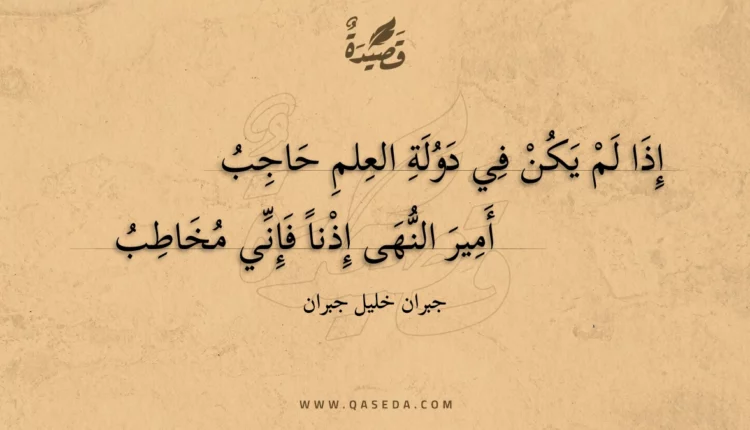 قَصِيدَةٌ
إِذَا لَمْ يَكُنْ فِي دَوْلَةِ العِلمِ حَاجِبُ
أَمِيرَ النُّهَى إِذْناً فَإِنِّي مُخَاطِبُ
جبران خليل جبران
WWW.QASEDA.COM